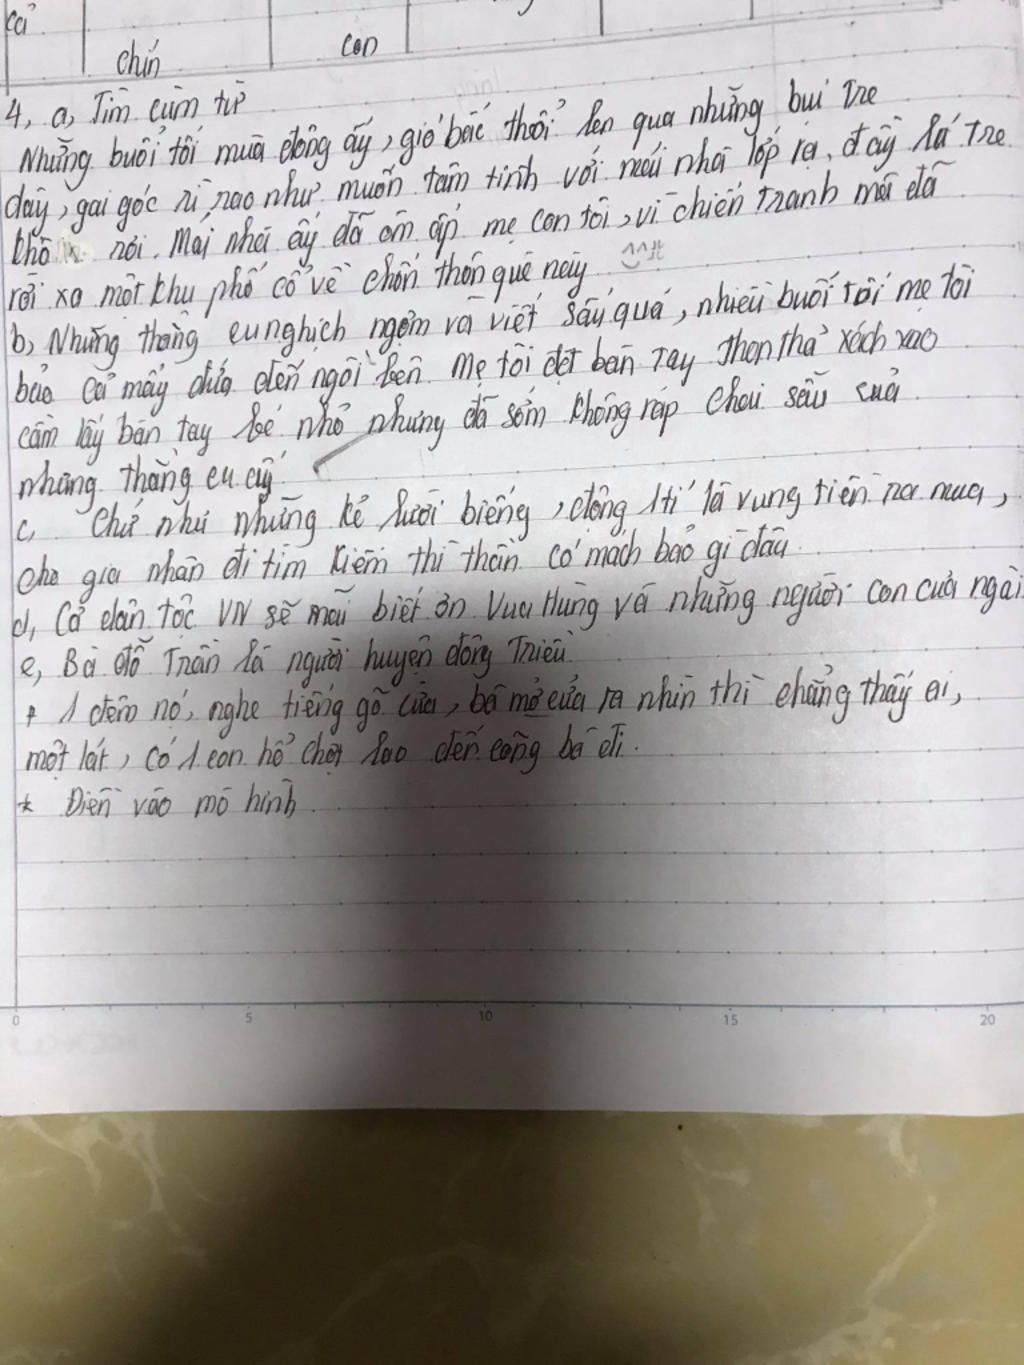 cả
chín
con
4, a, Tìm cụm từ
Những buổi tối mùa đông ấy, gió bấc thổi len qua những bụi tre
dày, gai góc rì rào như muốn tâm tình với mái nhà lợp rạ, đây lá tre
khô rơi. Mái nhà ấy đã ôm ấp mẹ con tôi, vì chiến tranh mà đã
rời xa một khu phố cổ về chốn thôn quê này
b, Những thằng cu nghịch ngợm và viết xấu quá, nhiều buổi tối mẹ tôi
bảo cả mấy đứa đến ngồi bên. Mẹ tôi đặt bàn tay thon thả xách xao
cầm lấy bàn tay bé nhỏ nhưng đã sớm không ráp chai sần của
những thằng cu cậy
c, Chứ như những kẻ lười biếng, động tí là vung tiền ra mua,
cho gia nhân đi tìm kiếm thì thần có mách bảo gì đâu.
d, Cả dân tộc VN sẽ mãi biết ơn Vua Hùng và những người con của ngài
e, Bà đỡ Trần là người huyện đông Triều.
+ 1 đêm nọ, nghe tiếng gõ cửa, bà mở cửa ra nhìn thì chẳng thấy ai,
một lát, có 1 con hổ chợt lao đến cõng bà đi.
* Điền vào mô hình.
0 5 10 15 20